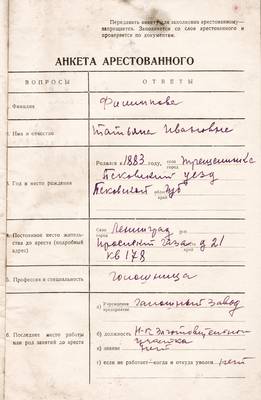 Передавать анкету для заполнения арестованному—
запрещается. Заполняется со слов арестованного и
проверяется по документам.
АНКЕТА АРЕСТОВАННОГО
ВОПРОСЫ
ОТВЕТЫ
1. Фамилия
Филиппова
2. Имя и отчество
Татьяна Ивановна
3. Год и место рождения
Родился в 1883 году, село
город
Псковский уезд
Псковской область
край
губ
4. Постоянное место житель-
ства до ареста (подробный
адрес)
Село
город
Ленинград
рон
край
д 21
кв 178
5. Профессия и специальность
галошница
6. Последнее место работы
или род занятий до ареста
а) Учреждение
предприятие
Галошный завод
б) должность
участка
в) звание нет
г) если не работает—когда и откуда уволен нет